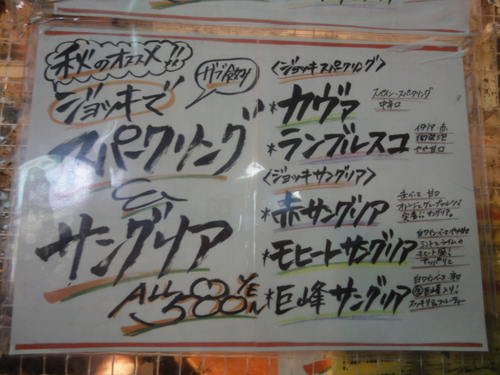 秋のオススメ!!
ジョッキで
ガブ飲み!
スパークリング
&
サングリア
ALL 500 YEN
〈ジョッキスパークリング〉
*カヴァ
スペイン・スパークリング
中辛口
*ランブルスコ
イタリア 赤
微発泡
やや甘口
〈ジョッキサングリア〉
*赤サングリア
赤ベース 甘口
*モヒートサングリア
白ワインベース
ミントとライムの
モヒート風!
*巨峰サングリア
白ワインベース
巨峰入り!